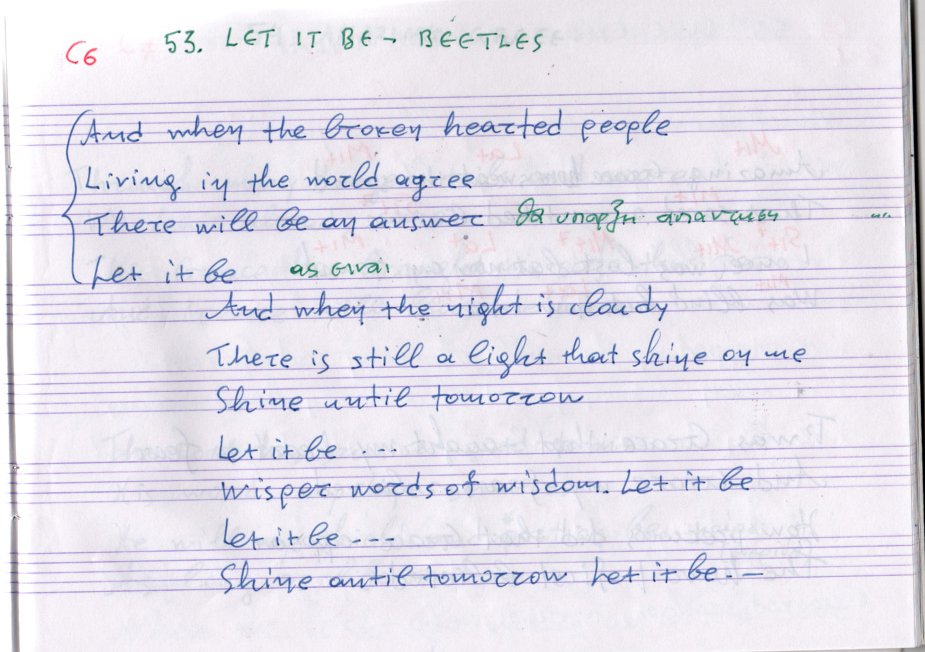 C6 53. LET IT BE - BEETLES
And when the broken hearted people
Living in the world agree
There will be an answer θα υπαρξη απαντηση
Let it be ας ειναι
And when the night is cloudy
There is still a light that shine on me
Shine until tomorrow
Let it be ...
Wisper words of wisdom. Let it be
Let it be ---
Shine antil tomorrow Let it be. —